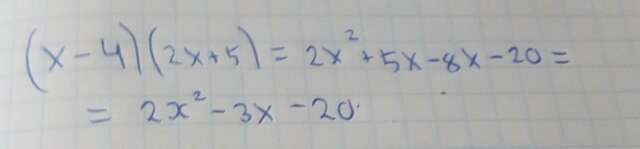 (x-4)(2x+5) = 2x²+5x-8x-20 =
= 2x²-3x-20